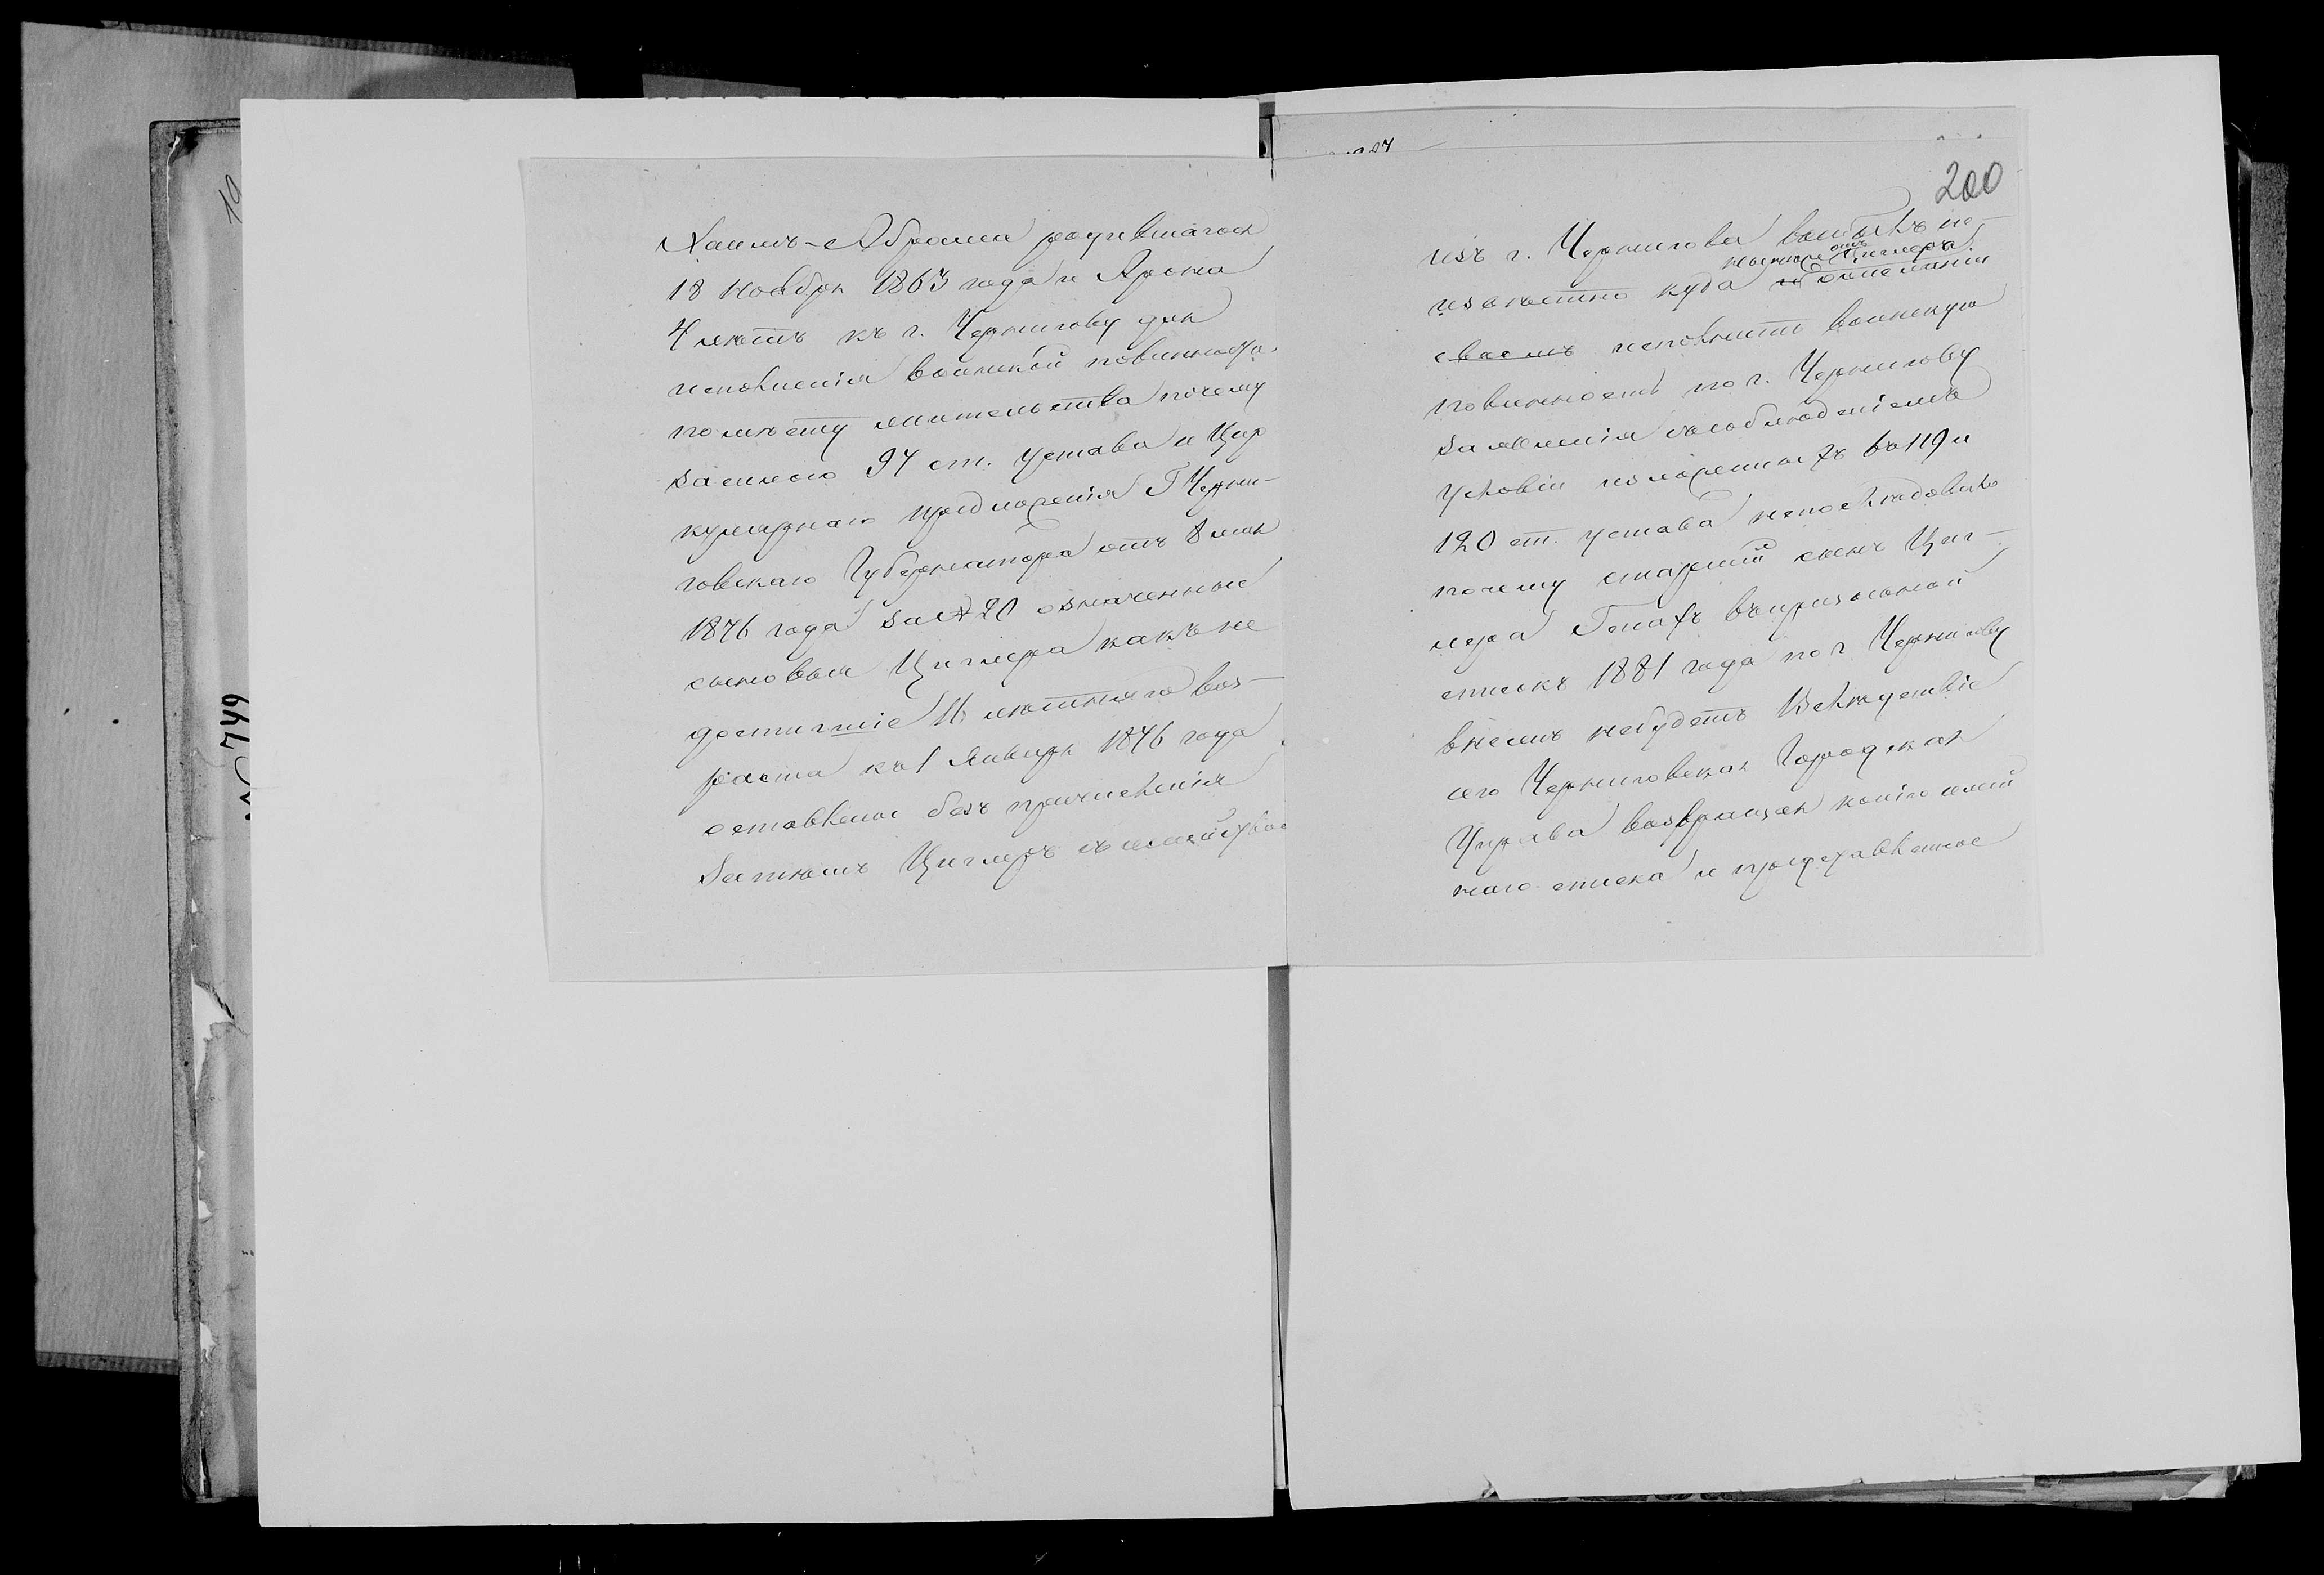 Хаимъ-Абрама родившагося
18 Ноября 1863 года и Арона
4 лѣтъ къ г. Чернигову для
исполненія воинской повинности
по мѣсту жительства почему
за силою 94 ст. Устава и Цир
кулярнаго предложенія Г Черни-
говскаго Губернатора отъ 8 мая
1876 года за № 20 означенные
сыновья Циглера какъ не
достигшіе 16 лѣтняго воз-
раста къ 1 Января 1876 года
оставлены безъ причисленія
Затѣмъ Циглеръ съ семействомъ
200
изъ г. Чернигова выбылъ не-
извѣстно куда
отъ
Циглера
своемъ исполнить воинскую
повинность по г. Чернигову
заявленія съ соблюденіемъ
условіи изложенныхъ въ 119 и
120 ст. Устава непослѣдовало
почему старшій сынъ Циг-
лера Генахъ въ призывной
списокъ 1881 года по г. Чернигову
внесенъ небудетъ Вслѣдствіе
сего Черниговская Городская
Управа возвращая копію посем
наго списка и представленное
№ 749
19